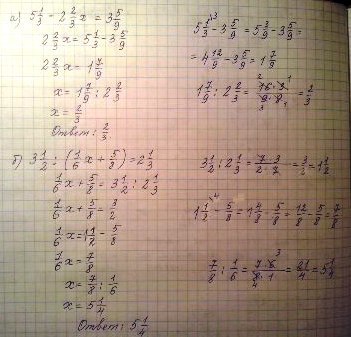 а) 5 1/3 - 2 2/3 x = 3 5/9
2 2/3 x = 5 1/3 - 3 5/9
2 2/3 x = 1 7/9
x = 1 7/9 : 2 2/3
x = 2/3
Ответ: 2/3.
5 1/3 - 3 5/9 = 5 3/9 - 3 5/9 =
= 4 12/9 - 3 5/9 = 1 7/9
1 7/9 : 2 2/3 = 16·3/9·8 = 2/3
б) 3 1/2 : (1/6 x + 5/8) = 2 1/3
1/6 x + 5/8 = 3 1/2 : 2 1/3
1/6 x + 5/8 = 3/2
1/6 x = 1 1/2 - 5/8
1/6 x = 7/8
x = 7/8 : 1/6
x = 5 1/4
Ответ: 5 1/4
3 1/2 : 2 1/3 = 7·3/2·7 = 3/2 = 1 1/2
1 1/2 - 5/8 = 1 4/8 - 5/8 = 12/8 - 5/8 = 7/8
7/8 : 1/6 = 7·6/8·1 = 21/4 = 5 1/4